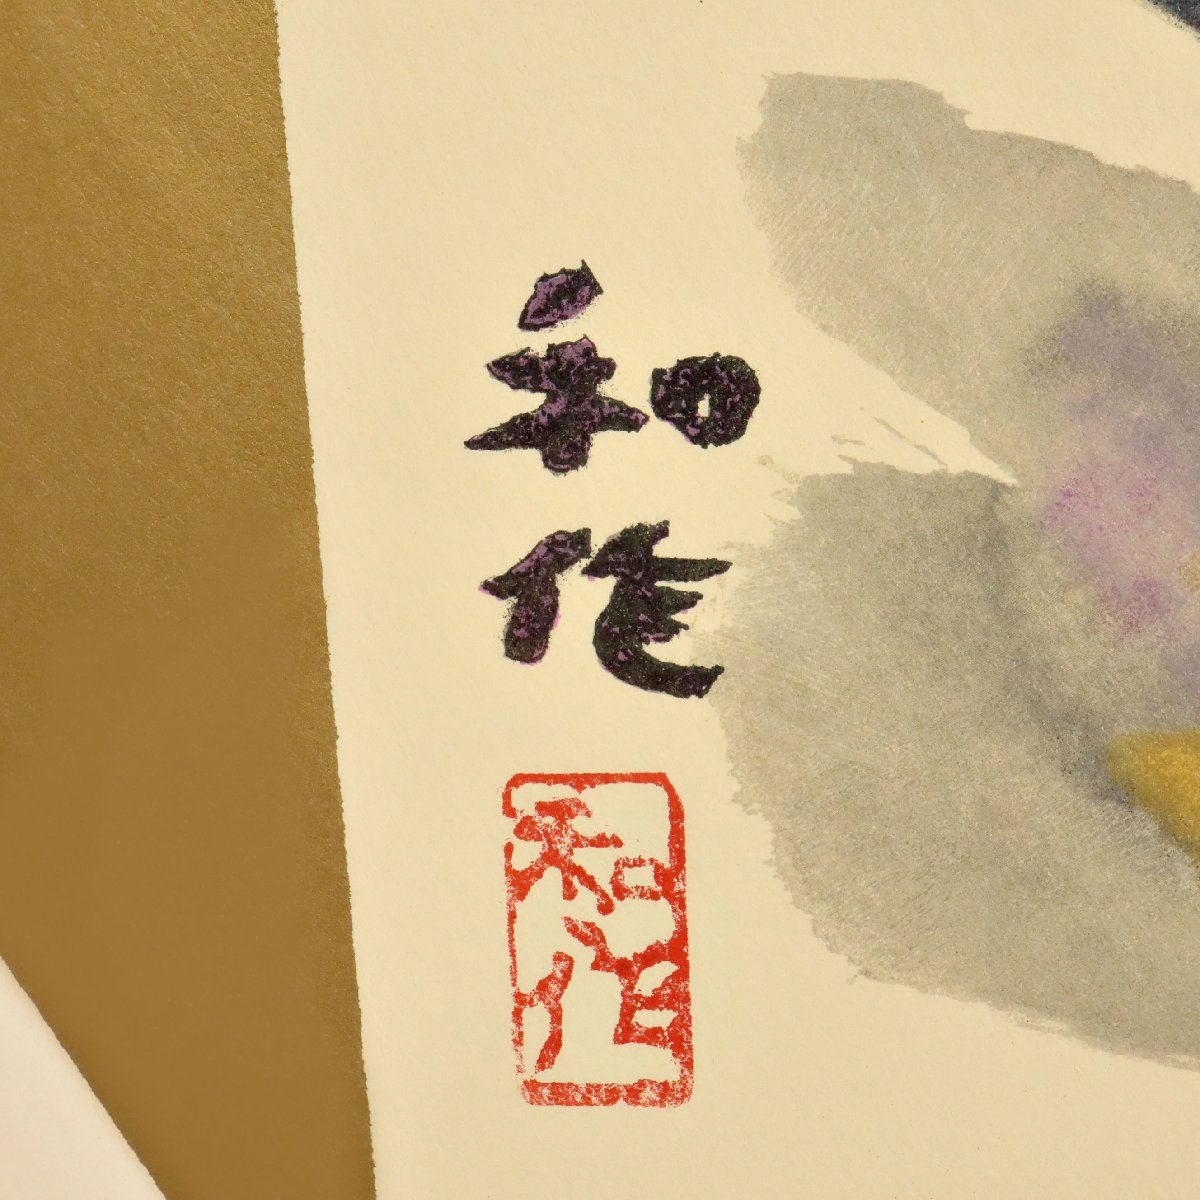 和作
和作